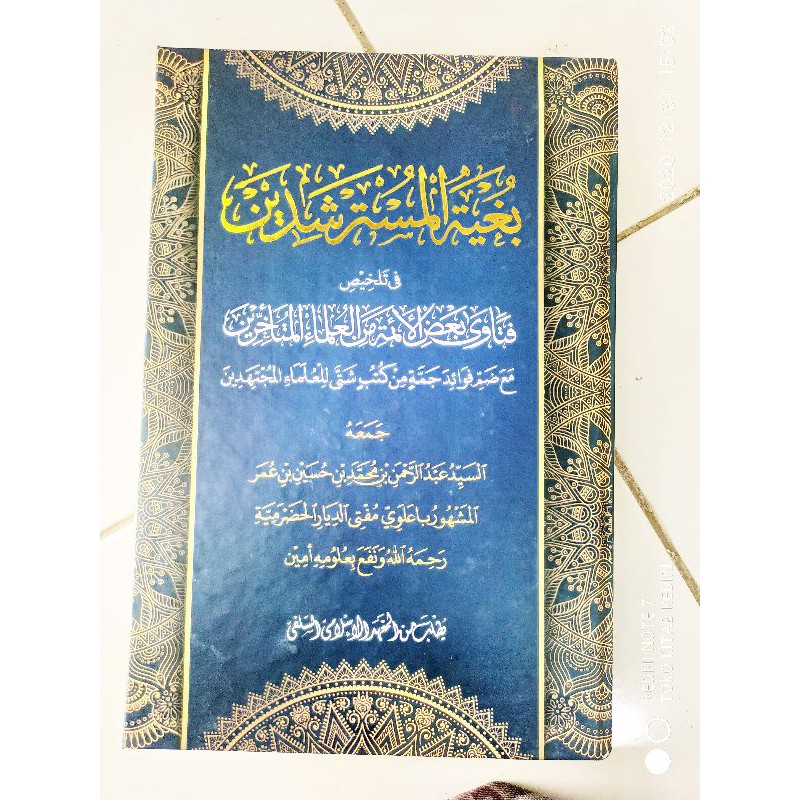 بُغْيَةُ الْمُسْتَرْشِدِيْنَ
فِى تَلْخِيْصِ
فَتَاوَى بَعْضِ الْأَئِمَّةِ مِنَ الْعُلَمَاءِ الْمُتَأَخِّرِيْنَ
مَعَ ضَمِّ فَوَائِدَ جَمَّةٍ مِنْ كُتُبٍ شَتَّى لِلْعُلَمَاءِ الْمُجْتَهِدِيْنَ
جَمَعَهُ
السَّيِّدُ عَبْدُ الرَّحْمٰنِ بْنِ مُحَمَّدِ بْنِ حُسَيْنِ بْنِ عُمَرَ
الْمَشْهُوْرُ بَاعَلَوِيْ مُفْتِى الدِّيَارِ الْحَضْرَمِيَّةِ
رَحِمَهُ اللّٰهُ وَنَفَعَ بِعُلُوْمِهِ أٰمِيْن
يطلب من المعهد الاسلامى السلفى
2020/12/21 15:03
REDMI NOTE 7
TOKO KITAB KEDIRI